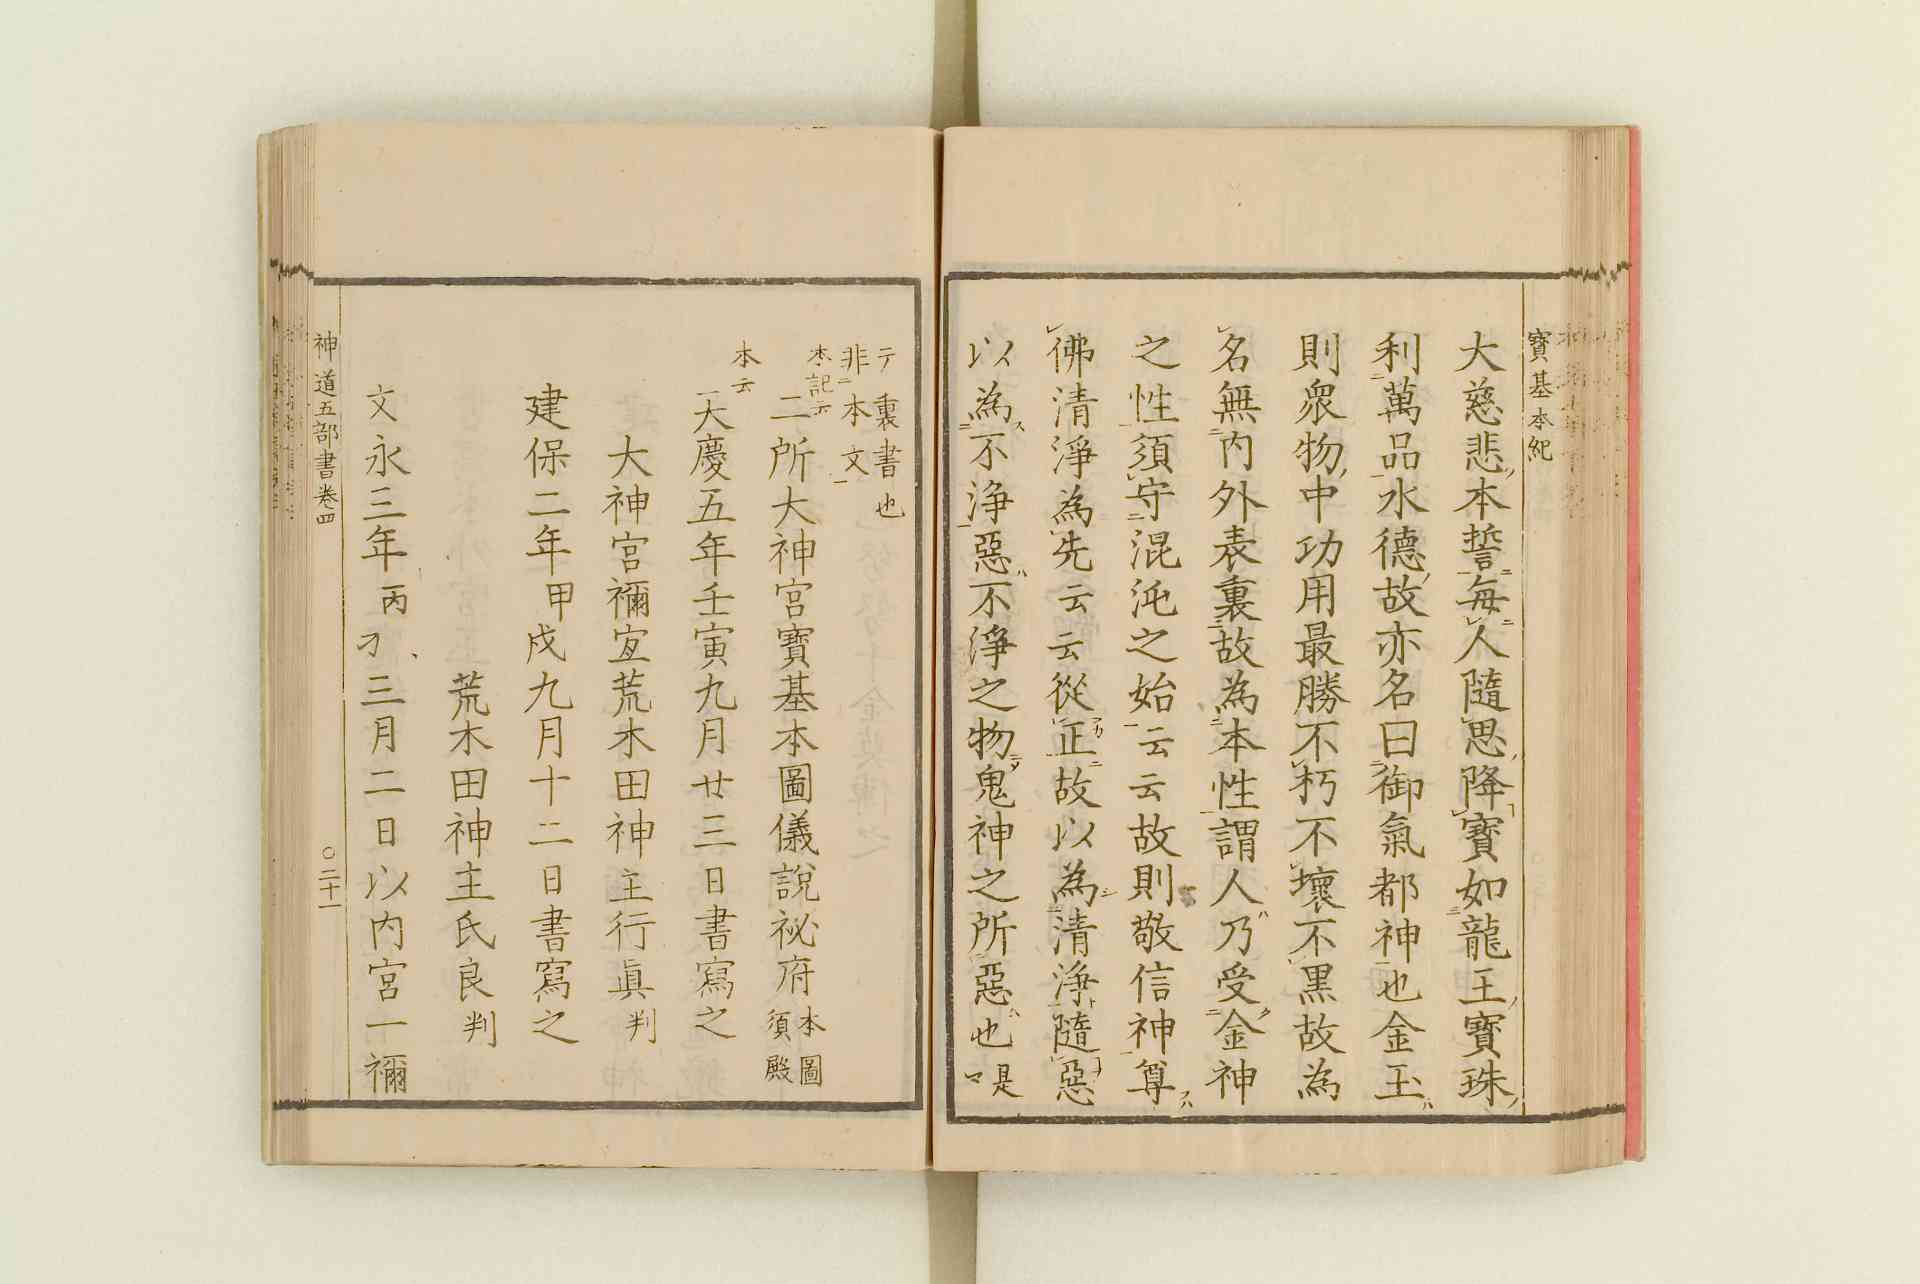 寶基本紀
大慈悲本誓每人隨思降寶如龍王寶珠
利萬品水德故亦名曰御氣都神也金玉
則衆物中功用最勝不朽不壞不黑故為
名無內外表裏故為本性謂人乃受金神
之性須守混沌之始云云故則敬信神尊
佛清淨為先云云從正故以為清浄隨惡
以為不浄惡不浄之物鬼神之所惡也是
テ裏書也
非本文
本記云
二所大神宮寶基本圖儀說祕府本圖須殿
本云
大慶五年壬寅九月廿三日書寫之
大神宮禰宜荒木田神主行眞判
建保二年甲戌九月十二日書寫之
荒木田神主氏良判
文永三年丙刁三月二日以內宮一禰
神道五部書卷四
○二十一